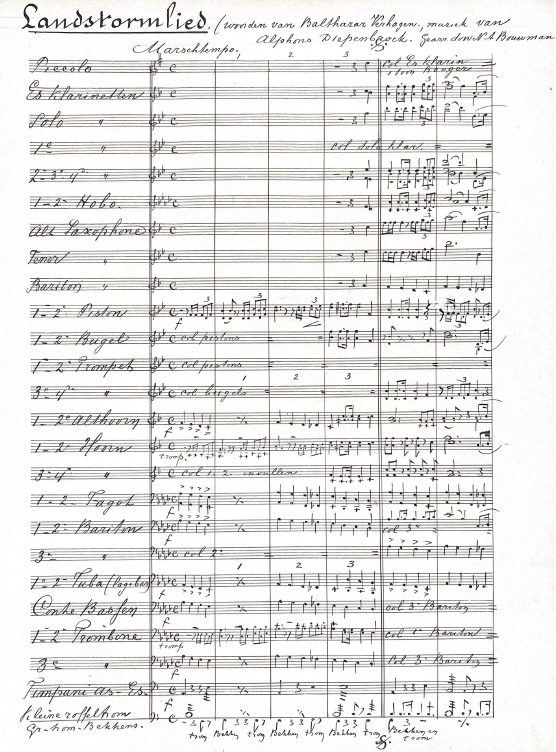 Landstormlied. (woorden van Balthazar Verhagen, muziek van
Alphons Diepenbrock. Gearr. door N.A. Bouwman
Marschtempo.
1 2 3
Piccolo col Es klarin
Es klarinetten
Solo "
1e " col solo klar.
2e 3e 4e "
1-2e Hobo.
Alt Saxophone
Tenor "
Bariton "
1-2e Piston f
1-2e Bugel col pistons
1-2e Trompet col pistons
1 2 3
3e 4e " col bugels
1-2e Althoorn f
1-2e Hoorn tromp.
3e 4e " col 1-2-invullen
1-2- Fagot f
1-2e Bariton f col 3e
3e " col 2e
1 2 3
1e 2e Tuba f
Contre Bassen f col 3e Bariton
1-2e Trombone tromp col 1e Bariton
3e " f Col 3e Bariton
Timpani as-Es. f
Kleine roffeltrom
Gr-trom-Bekkens. trom Bekken trom Bekken trom Bekken trom Bekken en
trom